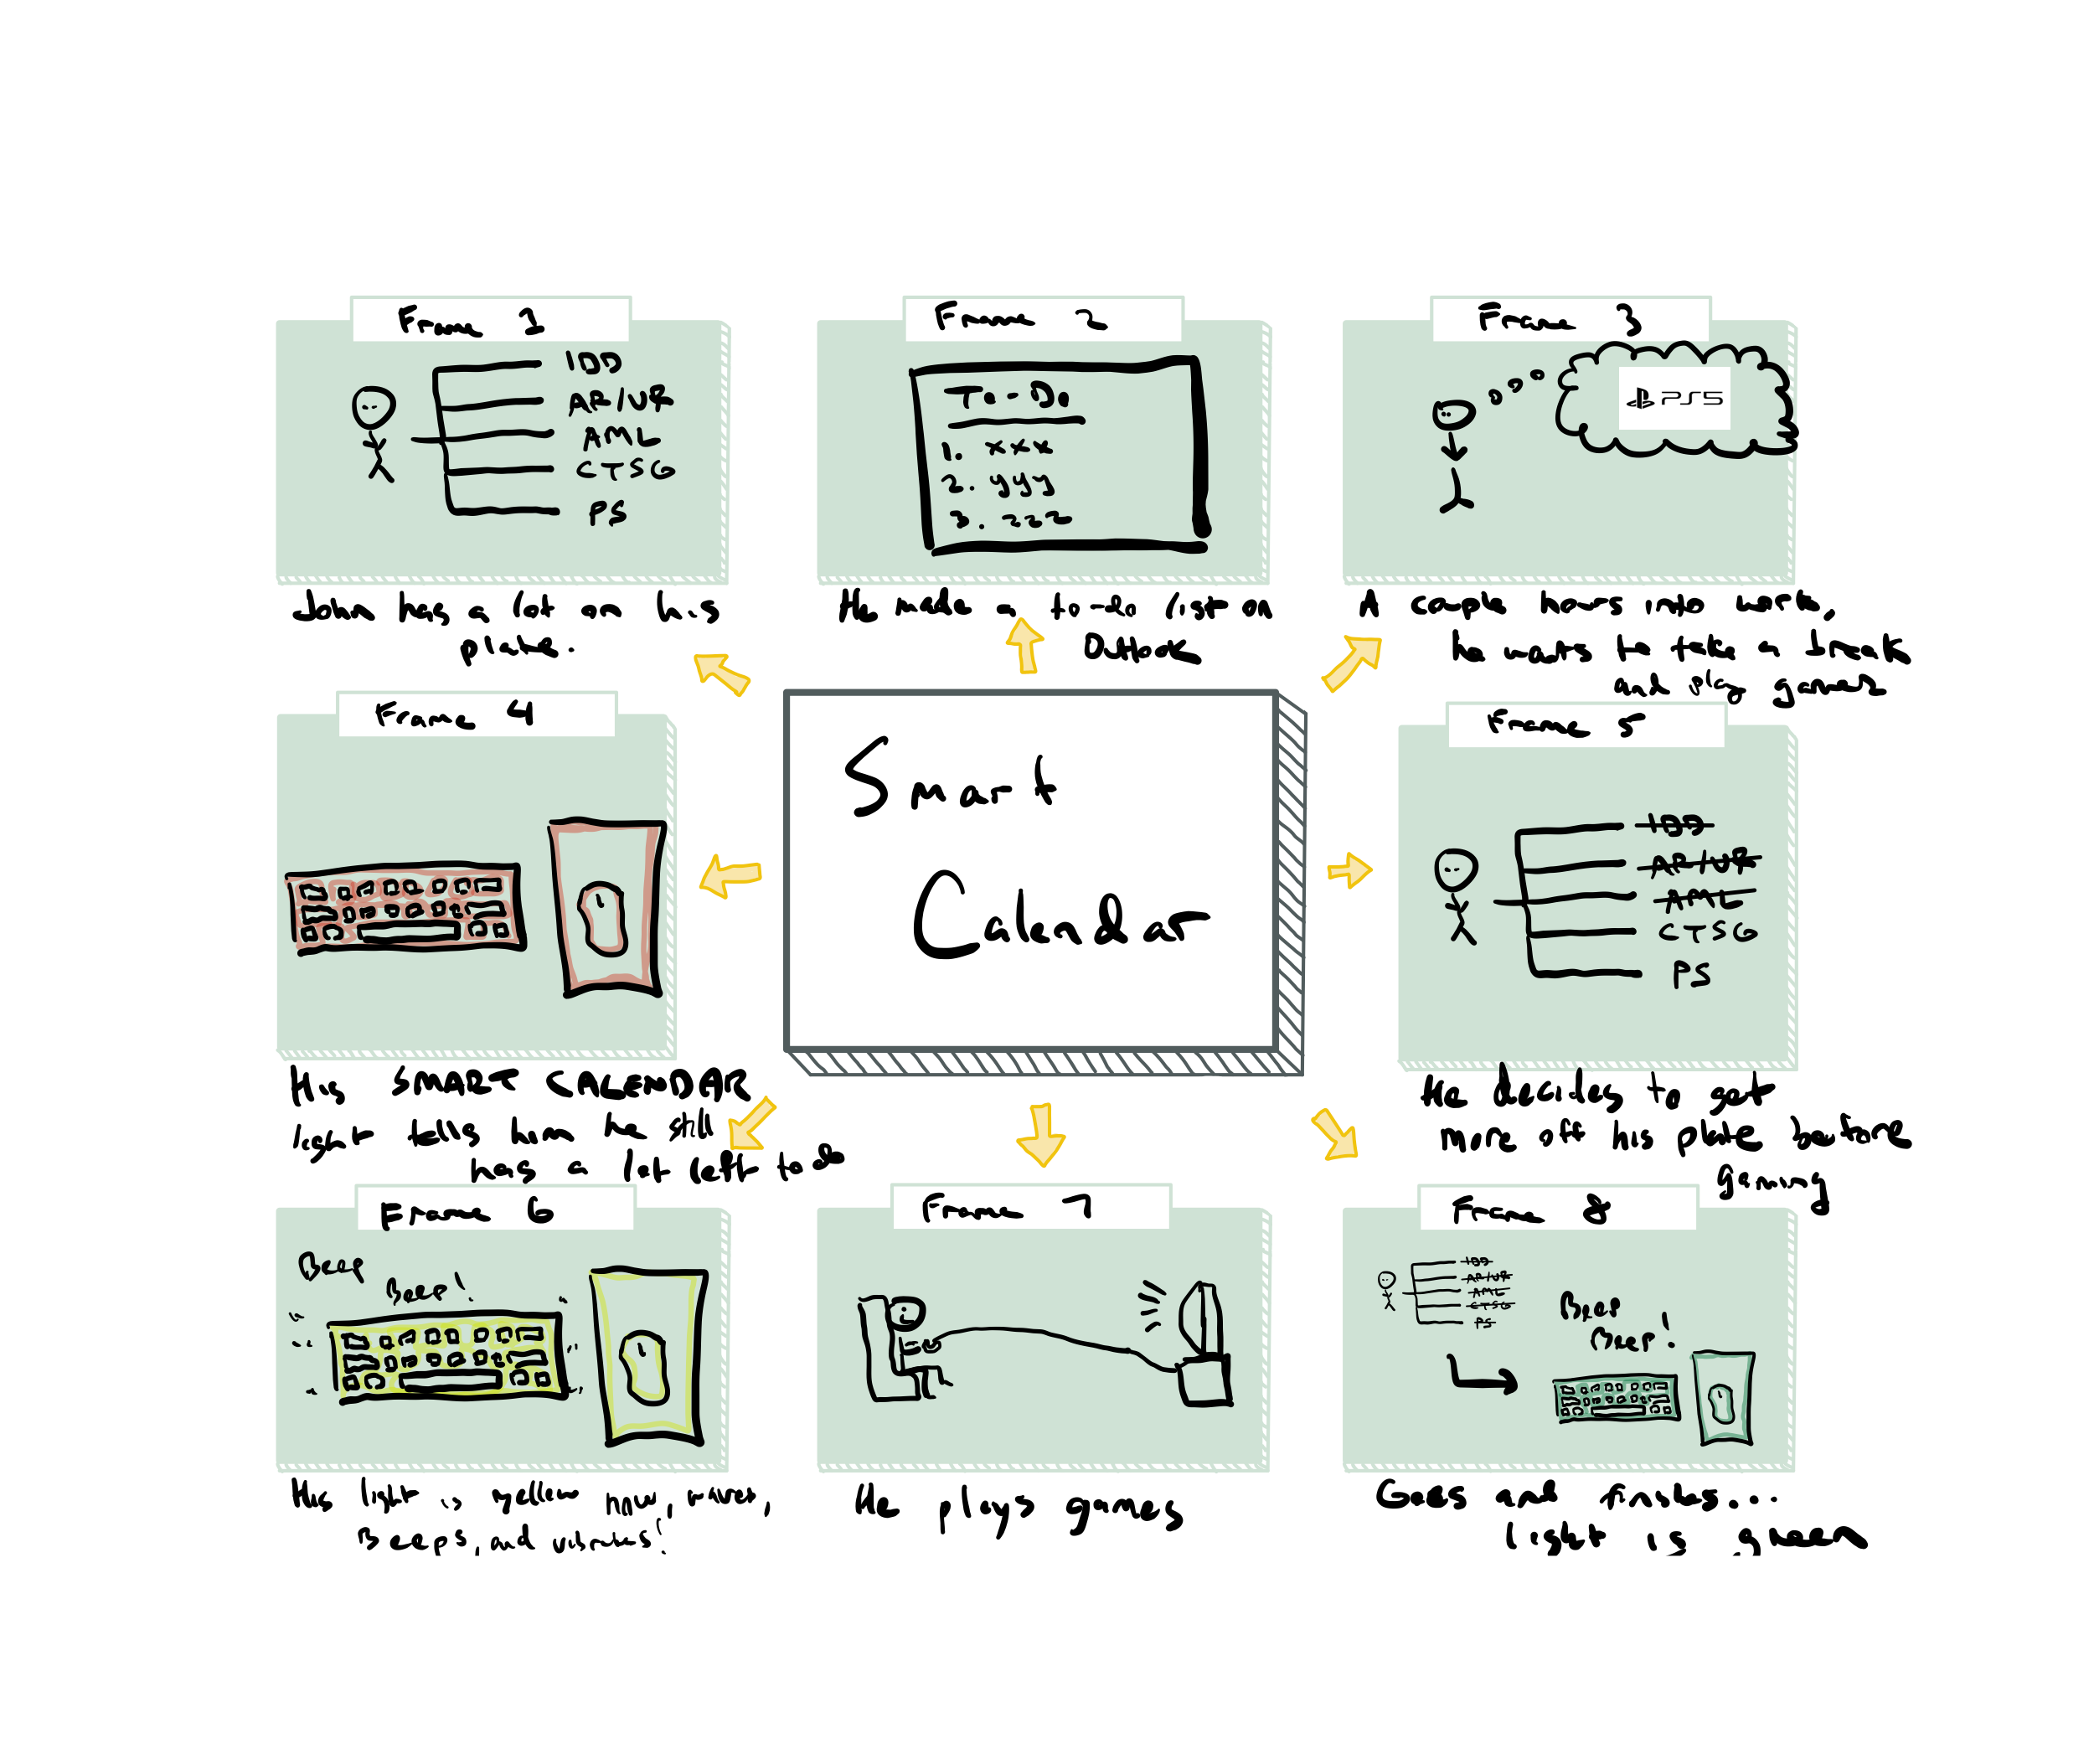 Frame 1
IDD
AR/VR
AML
CTSG
PS
John has a lot on his
plate.
Frame 2
To-Do
1. xxx
2. yyy
3. zzz
He made a to-do list on
Outlook
Frame 3
PS5
A couple hours into work,
he wants to take a break
and play games
Smart
Calendar
Frame 4
His SMART CALENDAR
light tells him he still
has a lot left to do
Frame 5
IDD
AR/VR
AML
CTSG
PS
He decides to get
more off his plate before
gaming
Frame 6
Beep
Beep!
His light is yellow now,
Beeps, and vibrates!
Frame 7
He plays games
Frame 8
IDD
AR/VR
AML
CTSG
PS
Beep
Beep!
Goes and finishes...
light is green